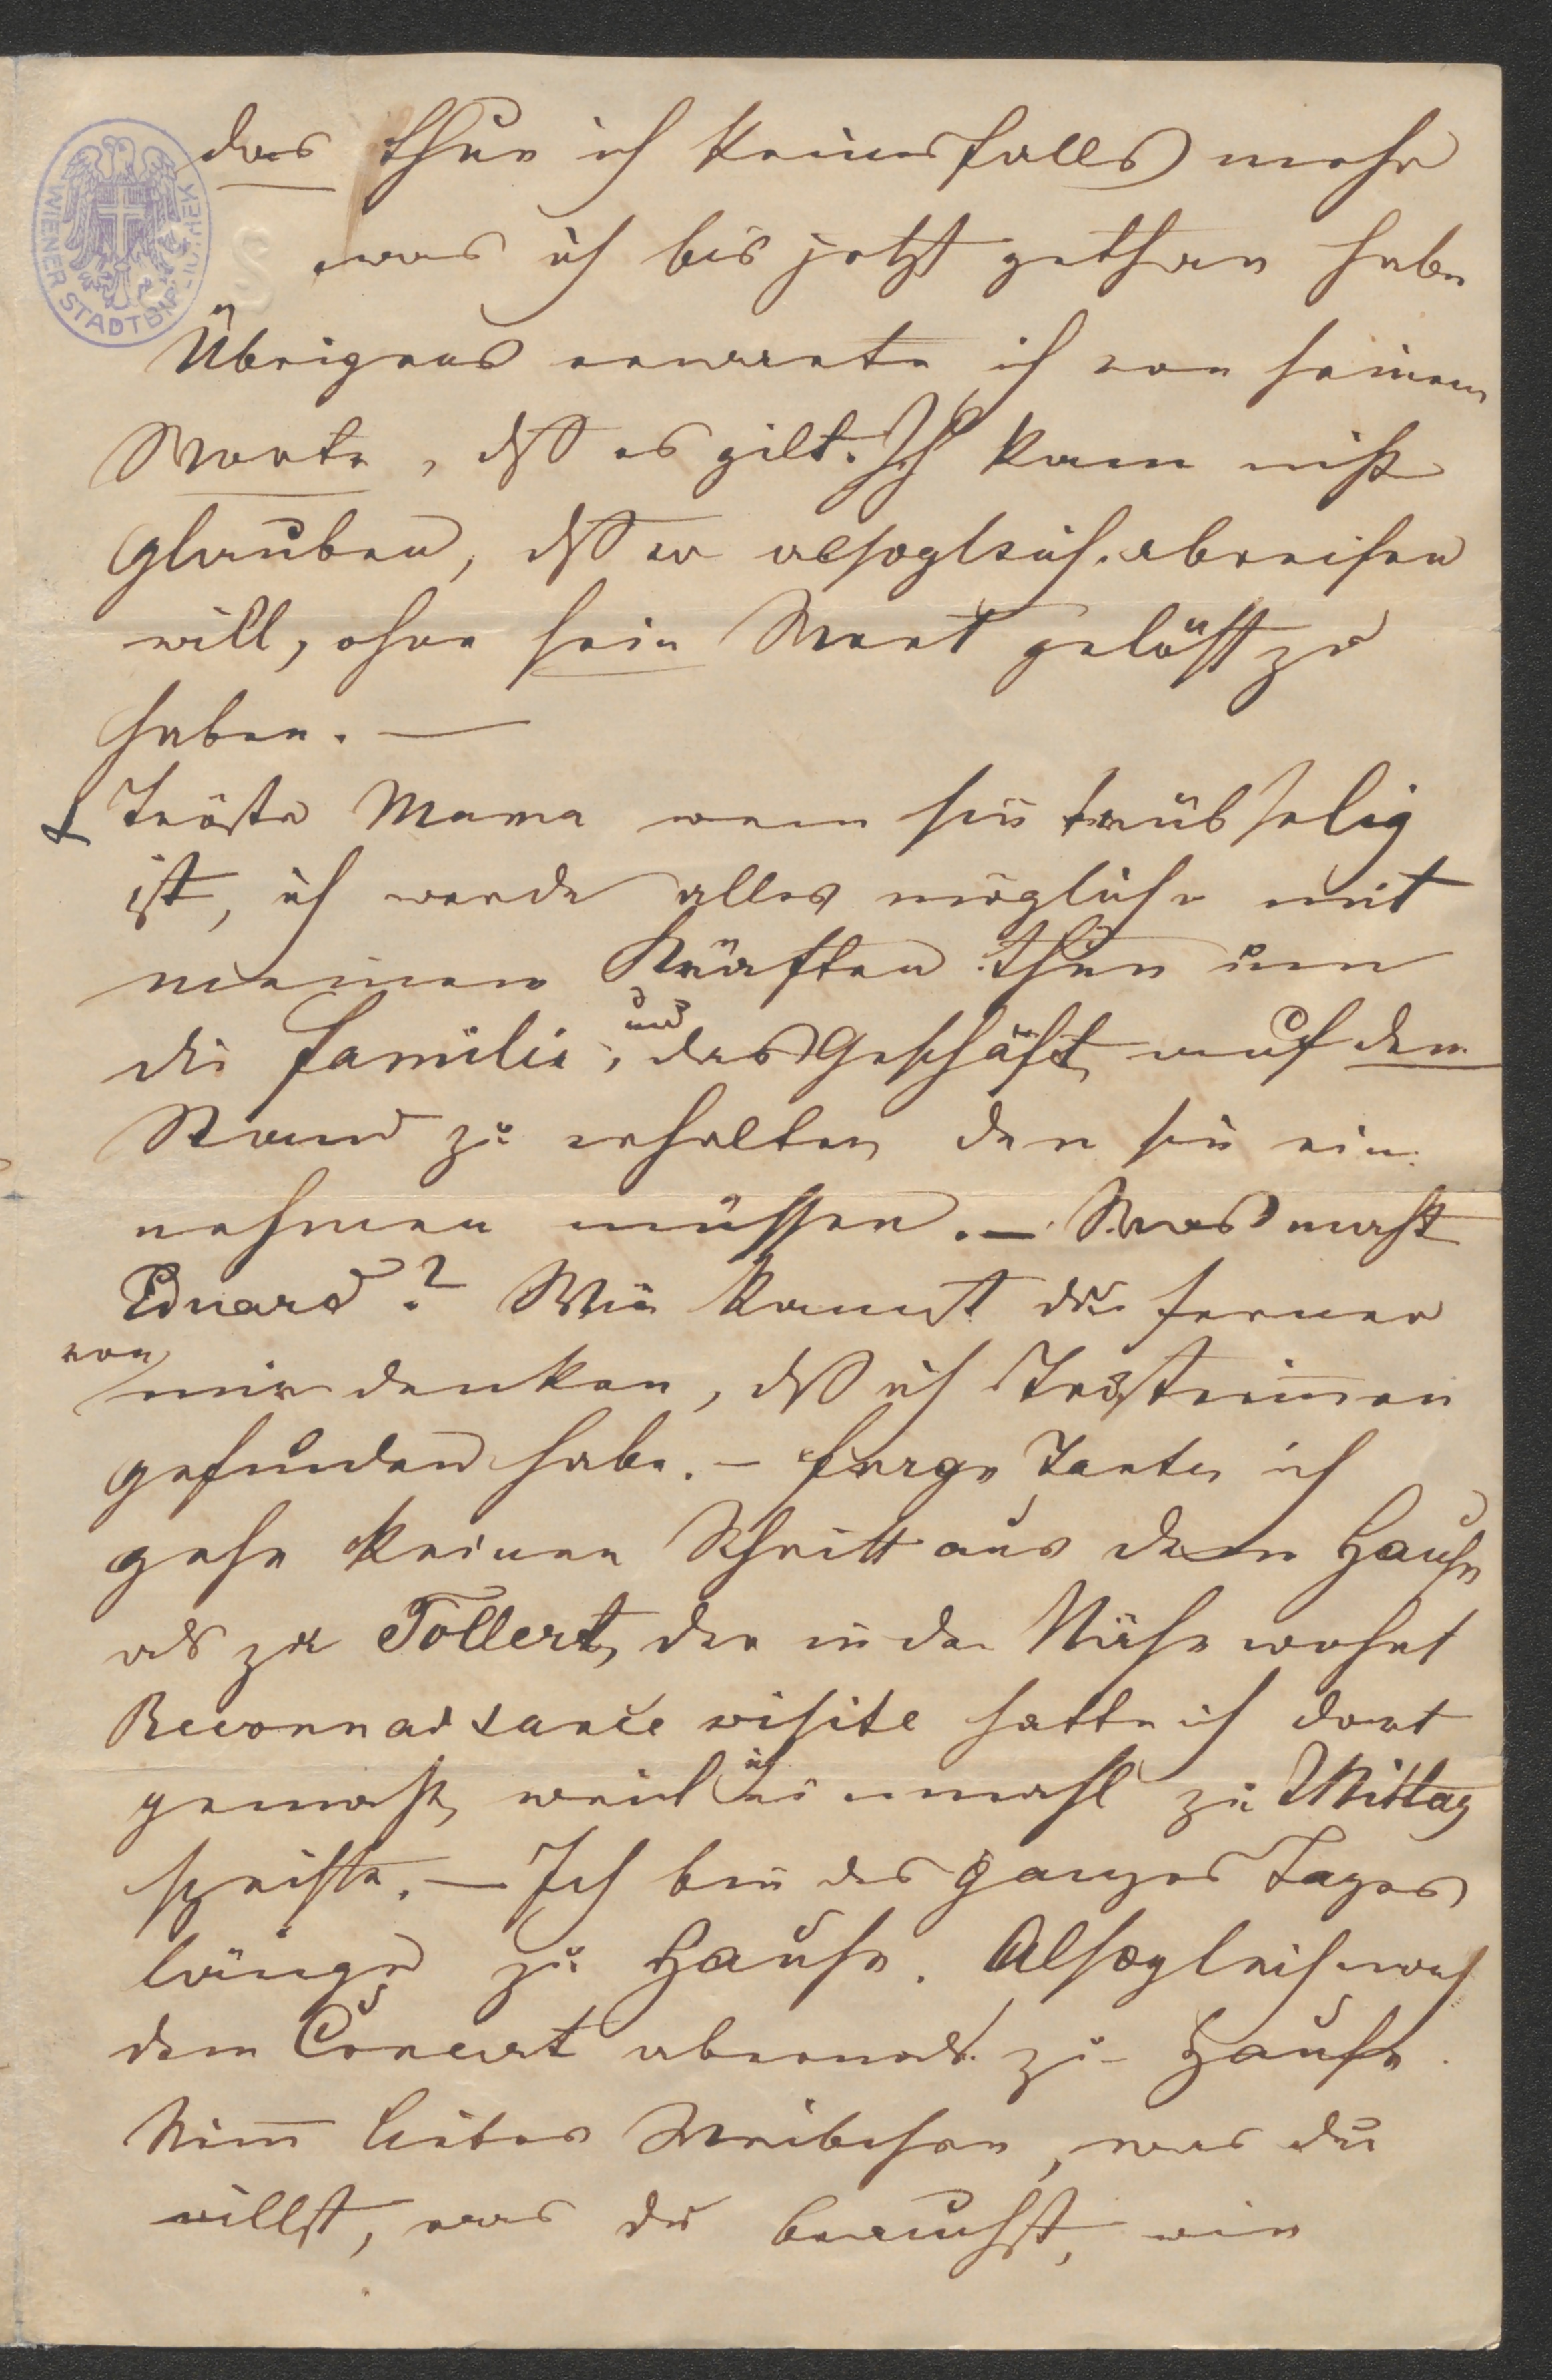 WIENER STADTBIBLIOTHEK
das thue ich keinesfalls mehr
was ich bis jetzt gethan habe
Übrigens erwarte ich von seinem
Worte, dß es gilt. Ich kann nicht
glauben, dß er alsogleich abreisen
will, ohne sein Wort gelöst zu
haben. —
Tröste Mama wenn sie trübselig
ist, ich werde alles mögliche mit
meinen Kräften thun um
die Familie, und das Geschäft auf dem
Stand zu erhalten den sie ein
nehmen müssen. — Was macht
Eduard? Wie kannst du ferner
von mir denken, dß ich Trösterinnen
gefunden habe. — frage Tante ich
gehe keinen Schritt aus dem Hause
als zu Tollert, der in der Nähe wohnt
Reconnaissance visite hatte ich dort
gemacht, weil ich einmahl zu Mittag
speiste. — Ich bin des ganzes Tages
länge zu Hause. Alsogleich nach
dem Concert abermals zu Hause.
Nimm liebes Weibchen, was du
willst, was du brauchst, wie